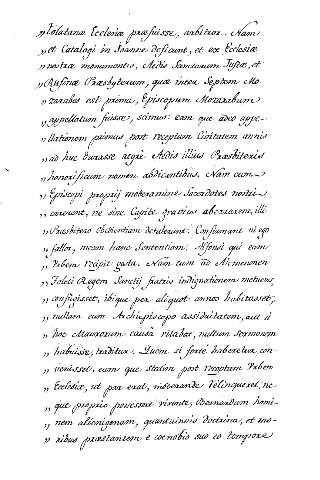 „ Toletanæ Ecclesiæ præfuisse, arbitror. Nam
„ et Catalogi in Joanne deficiunt, et ex Ecclesiæ
„ nostræ monumentis, Aedis Sanctarum Justæ, et
„ Rufinæ Præsbyterum, quæ inter Septem Mo-
„ zarabes est prima, Episcopum Mozarabum
„ appellatum fuisse, scimus: eam que adeo appe-
„ llationem primus post receptam Civitatem annis
„ ad huc durasse ægrè Aedis illius Præsbiteris
„ honorificum nomen abdicantibus. Nam cum
„ Episcopi proprij moderamine Sacerdotes nostri
„ carerent, ne sine Capite gravius aberrarent, illi
„ Præsbitero obedientiam detulerunt. Confirmant ni ego
„ fallor, meam hanc Sententiam, Alfonsi qui eam
„ Urbem recipit gesta. Nam cum ad Almenonem
„ Toleti Regem Sanctij fratris indignationem metuens,
„ confugisset, ibique per aliquot annos habitasset,
„ nullam cum Archiepiscopo assiduitatem, aut is
„ hoc Maurorum causa vitabat, nullum sermonem
„ habuisse, traditur. Quem si fortè haberetur, con-
„ venisset, eum que statim post receptam Urbem
„ Ecclesiæ, ut par erat, moderandæ reliqueret, ne-
„ que proprio possessore vivente, Bernardum homi-
„ nem alienigenam, quantumvis doctrina, et mo-
„ ribus præstantem e cœnobio suo eo tempore